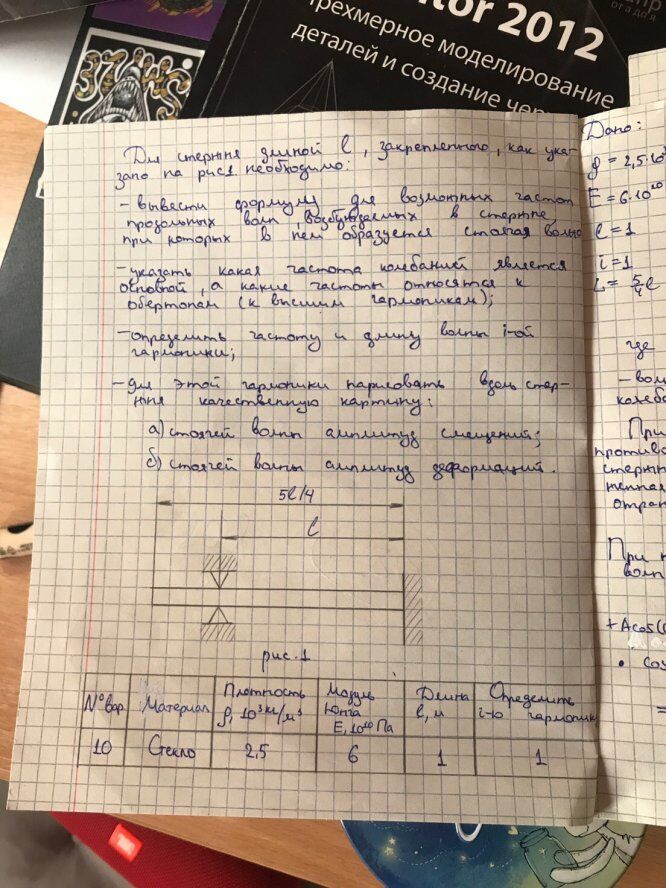 tor 2012
трёхмерное моделирование
деталей и создание чер
от а до я
Для стержня длиной l, закрепленного, как ука-
зано на рис1 необходимо:
- вывести формулу для возможных частот
продольных волн, возбуждаемых в стержне,
при которых в нем образуется стоячая волна
- указать какая частота колебаний является
основной, а какие частоты относятся к
обертонам (к высшим гармоникам);
- определить частоту и длину волны i-ой
гармоники;
- для этой гармоники нарисовать вдоль стер-
жня качественную картину:
а) стоячей волны амплитуд смещений;
б) стоячей волны амплитуд деформаций.
5l/4
l
рис. 1
N° вар. Материал Плотность ρ, 10³ кг/м³ Модуль Юнга E, 10¹⁰ Па Длина l, м Определить i-ю гармонику
10 Стекло 2,5 6 1 1
Дано:
ρ = 2,5·10³
E = 6·10¹⁰
l = 1
i = 1
L = 5/4 l
где
- вол
колеба
При
против
стержн
отран
При
волн
+ Acos(